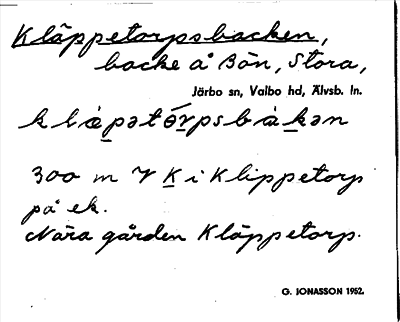 Kläppetorpsbacken,
backe å Bön, Stora,
Järbo sn, Valbo hd, Älvsb. ln.
klæpətórpsbàkən
300 m V K i Klippetorp
på ek.
Nära gården Kläppetorp.
G. JONASSON 1952.